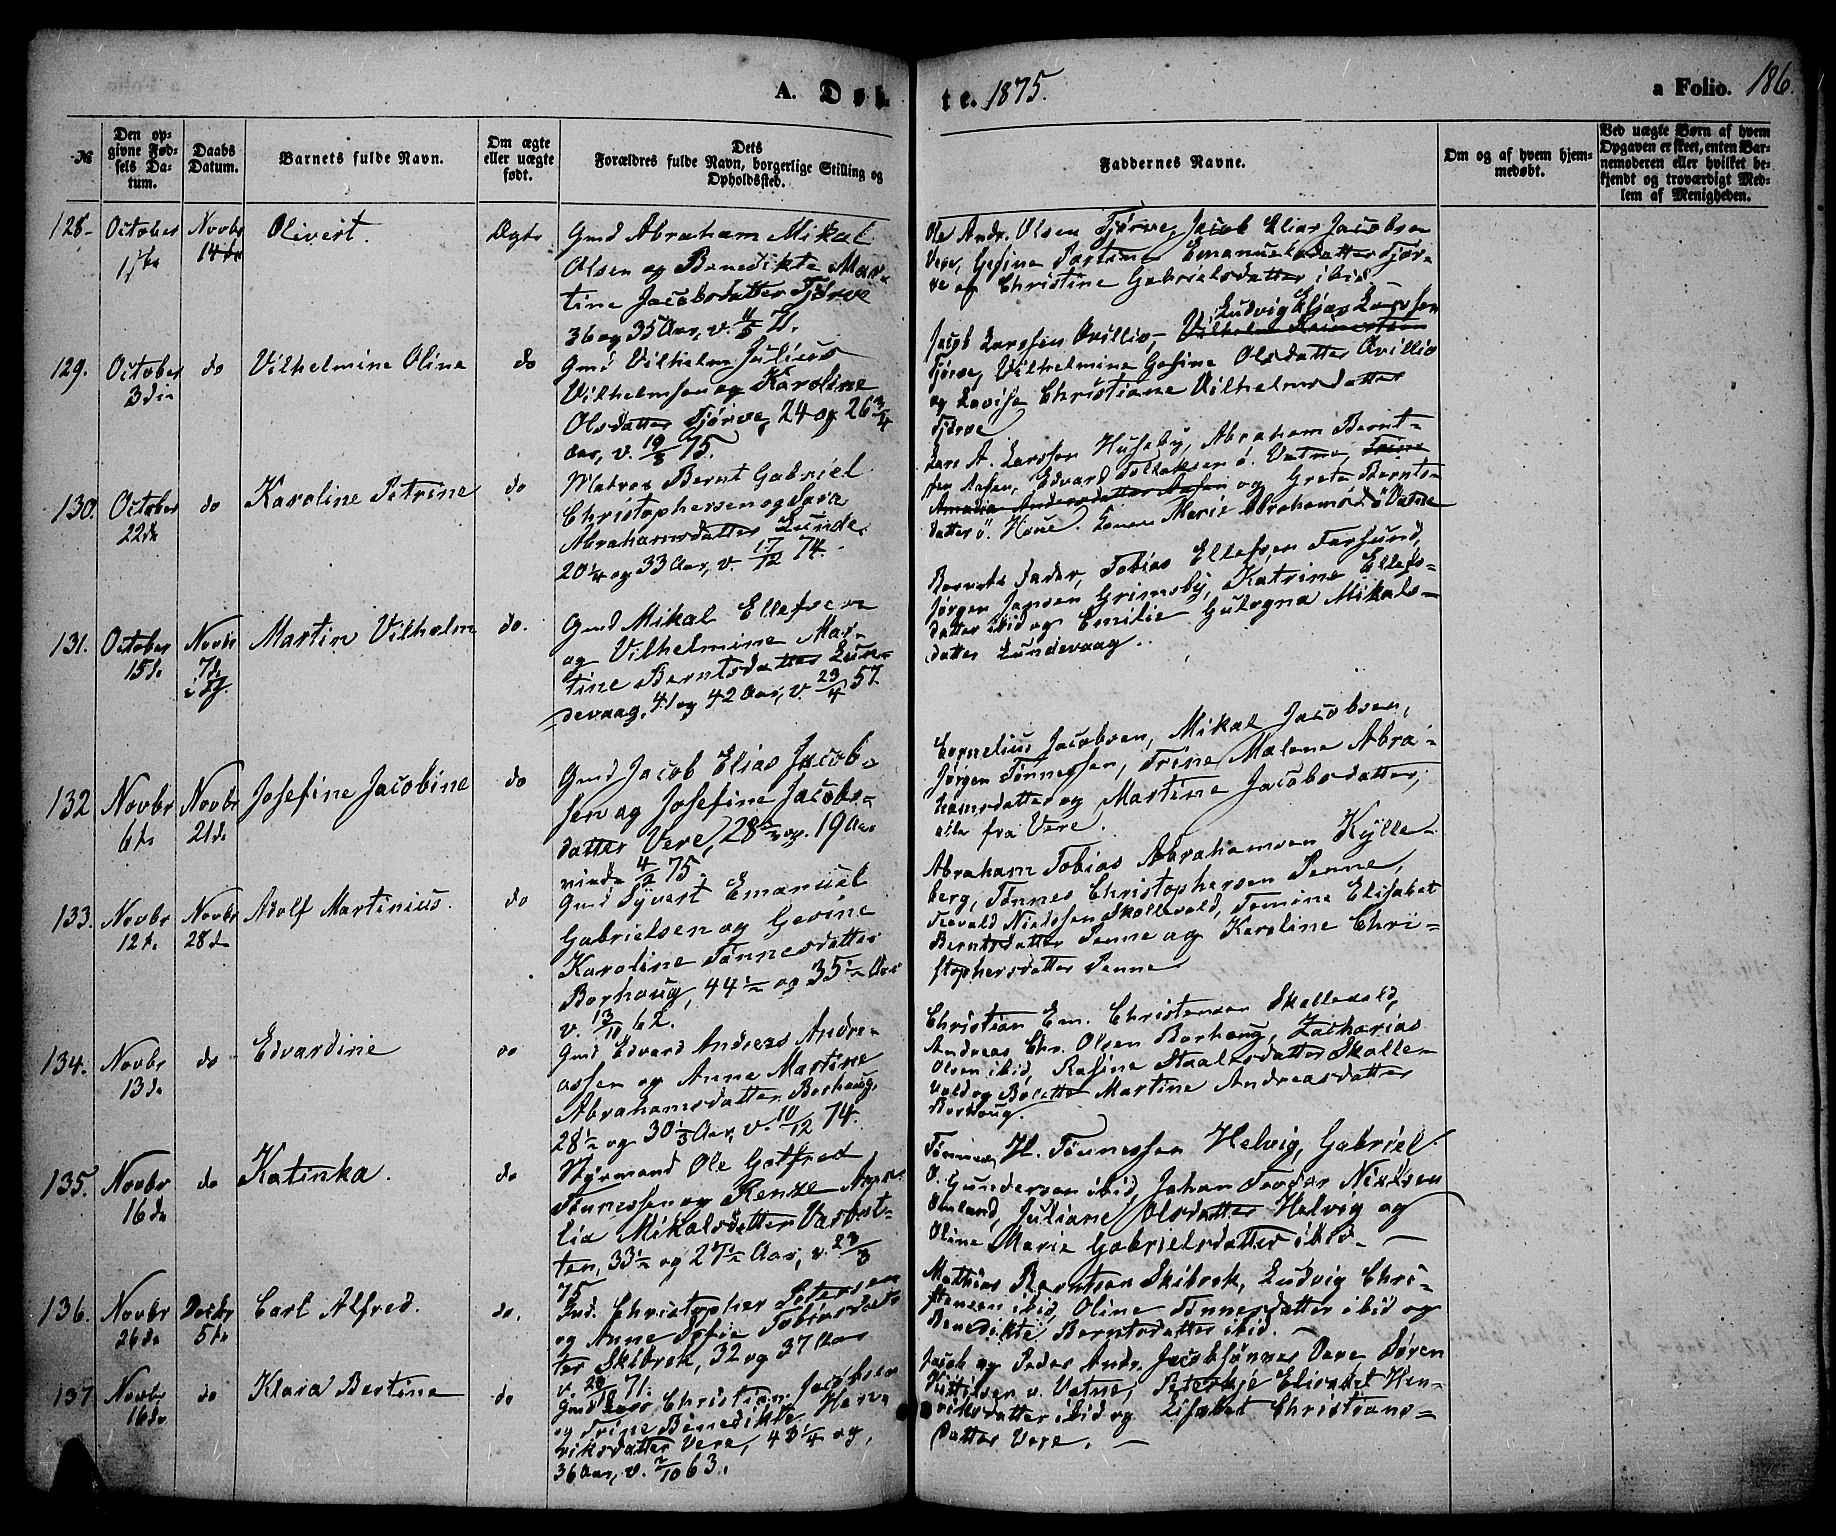 A. Døb-
te. 1875.
a Folio. 186.
№
Den op-
givne Fød-
sels Da-
tum.
Daabs
Datum.
Barnets fulde Navn.
Om ægte
eller uægte
født.
Dets
Forældres fulde Navn, borgerlige Stilling og
Opholdssted.
Faddernes Navne.
Om og af hvem hjem-
medøbt.
Ved uægte Børn af hvem
Opgaven er skeet, enten Bar-
nemoderen eller hvilket be-
kjendt og troværdigt Med-
lem af Menigheden.
128-
October
Novbr
14de
Olivert.
Ægte
Gmd Abraham Mikal
Olsen og Benedikte Mar-
tine Jacobsdatter Tjørve
36 og 35 Aar, v. 11/5 71.
Ole Andr. Olsen Tjørve, Jacob Elias Jacobsen
Vere, Gesine Emanuelsdatter Tjør-
ve og Christine Gabrielsdatter ibid.
129.
October
3die
do
Vilhelmine Oline
do
Gmd Vilhelm Julius
Vilhelmsen og Karoline
Olsdatter Tjørve, 24 og 26 3/4
Aar, v. 19/3 75.
Ludvig Elias Larssen
Jacob Larssen Øvillie, Vilhelm
Tjørve, Vilhelmine Gesine Olsdatter Øvillie
og Lovise Christiane Vilhelmsdatter
Tjørve
130.
October
22de
do
Karoline Petrine
do
Matros Bernt Gabriel
Christophersen og Sara
Abrahamsdatter Lunde
20 1/4 og 33 Aar, v. 17/12 74.
Lars A. Larssen Huseby, Abraham Bernt-
sen Aasen, Edvard Tollaksen ö. Vatne, Trine
Amalia Andersdatter Aasen og Grete Bernts-
datter ö. Haue. Marie Abrahamsd. ö Vatne
131.
October
15de
Novbr
7de
Martin Vilhelm
do.
Gmd Mikal Ellefsen
og Vilhelmine Mar-
tine Berntsdatter Lun-
devaag, 41 og 42 Aar, v. 23/4 57.
Barnets Fader, Tobias Ellefsen Farsund,
Jørgen Jansen Grimsby, Katrine Ellefs-
datter ibid og Emilie Gulogna Mikals-
datter Lundevaag.
132
Novbr
6te
Novbr
21de
Josefine Jacobine
do
Gmd Jacob Elias Jacob-
sen og Josefine Jacobs-
datter Vere, 28 og 19 Aar
viede 4/2 75.
Cornelius Jacobsen, Mikal Jacobsen,
Jørgen Tønnessen, Trine Malene Abra-
hamsdatter og Martine Jacobsdatter,
alle fra Vere.
133.
Novbr
12te
Novbr
28de
Adolf Martinius.
do
Gmd Syvert Emanuel
Gabrielsen og Gevine
Karoline Tønnesdatter
Borhaug, 44 1/2 og 35 1/2 Aar
v. 13/11 62.
Abraham Tobias Abrahamsen Kjølle-
berg, Tønnes Christophersen Penne,
Teovald Nielssen Skollevold, Tomine Elisabet
Berntsdatter Penne og Karoline Chri-
stophersdatter Penne
134.
Novbr
13de
do
Edvardine
do
Gmd Edvard Andreas Andre-
assen og Anne Martine
Abrahamsdatter Borhaug.
28 1/2 og 30 1/3 Aar, v. 10/12 74.
Christian Em. Christensen Skollevold,
Andreas Chr. Olsen Borhaug, Zacharias
Olsen ibid, Rasine Staalesdatter Skolle-
vold og Bolette Martine Andreasdatter
Borhaug.
135.
Novbr
16de
do
Katinka.
do
Styrmand Ole Gotfred
Tønnessen og Renze Ama-
lia Mikalsdatter Varbost-
ten, 33 1/2 og 27 1/2 Aar, v. 23/3
75
Tønnes H. Tønnessen Helvig, Gabriel
O. Gundersen ibid, Johan Teodor Nielsen
Omland, Juliane Olsdatter Helvig og
Oline Marie Gabrielsdatter ibid. —
136.
Novbr
26de
Decbr
5te
Carl Alfred.
do.
Ind. Christopher Petersen
og Anne Sofie Tobiasdat-
ter Skibrok, 32 og 37 Aar
v. 29/10 71.
Mathias Berntsen Skibrok, Ludvig Chri-
stensen ibid, Oline Tønnesdatter ibid og
Benedikte Berntsdatter ibid. —
137
Novbr
16de
do
Klara Bertine
do
Gmd Lars Christian Jacobsen
og Trine Benedikte Hen-
riksdatter Vere, 43 1/4 og
36 Aar, v. 2/10 63.
Jacob og Peder Andr. Jacobsønner Vere, Søren
Kittelsen v. Vatne, Elisabet Hen-
riksdatter ibid og Elisabet Christians-
datter Vere. —